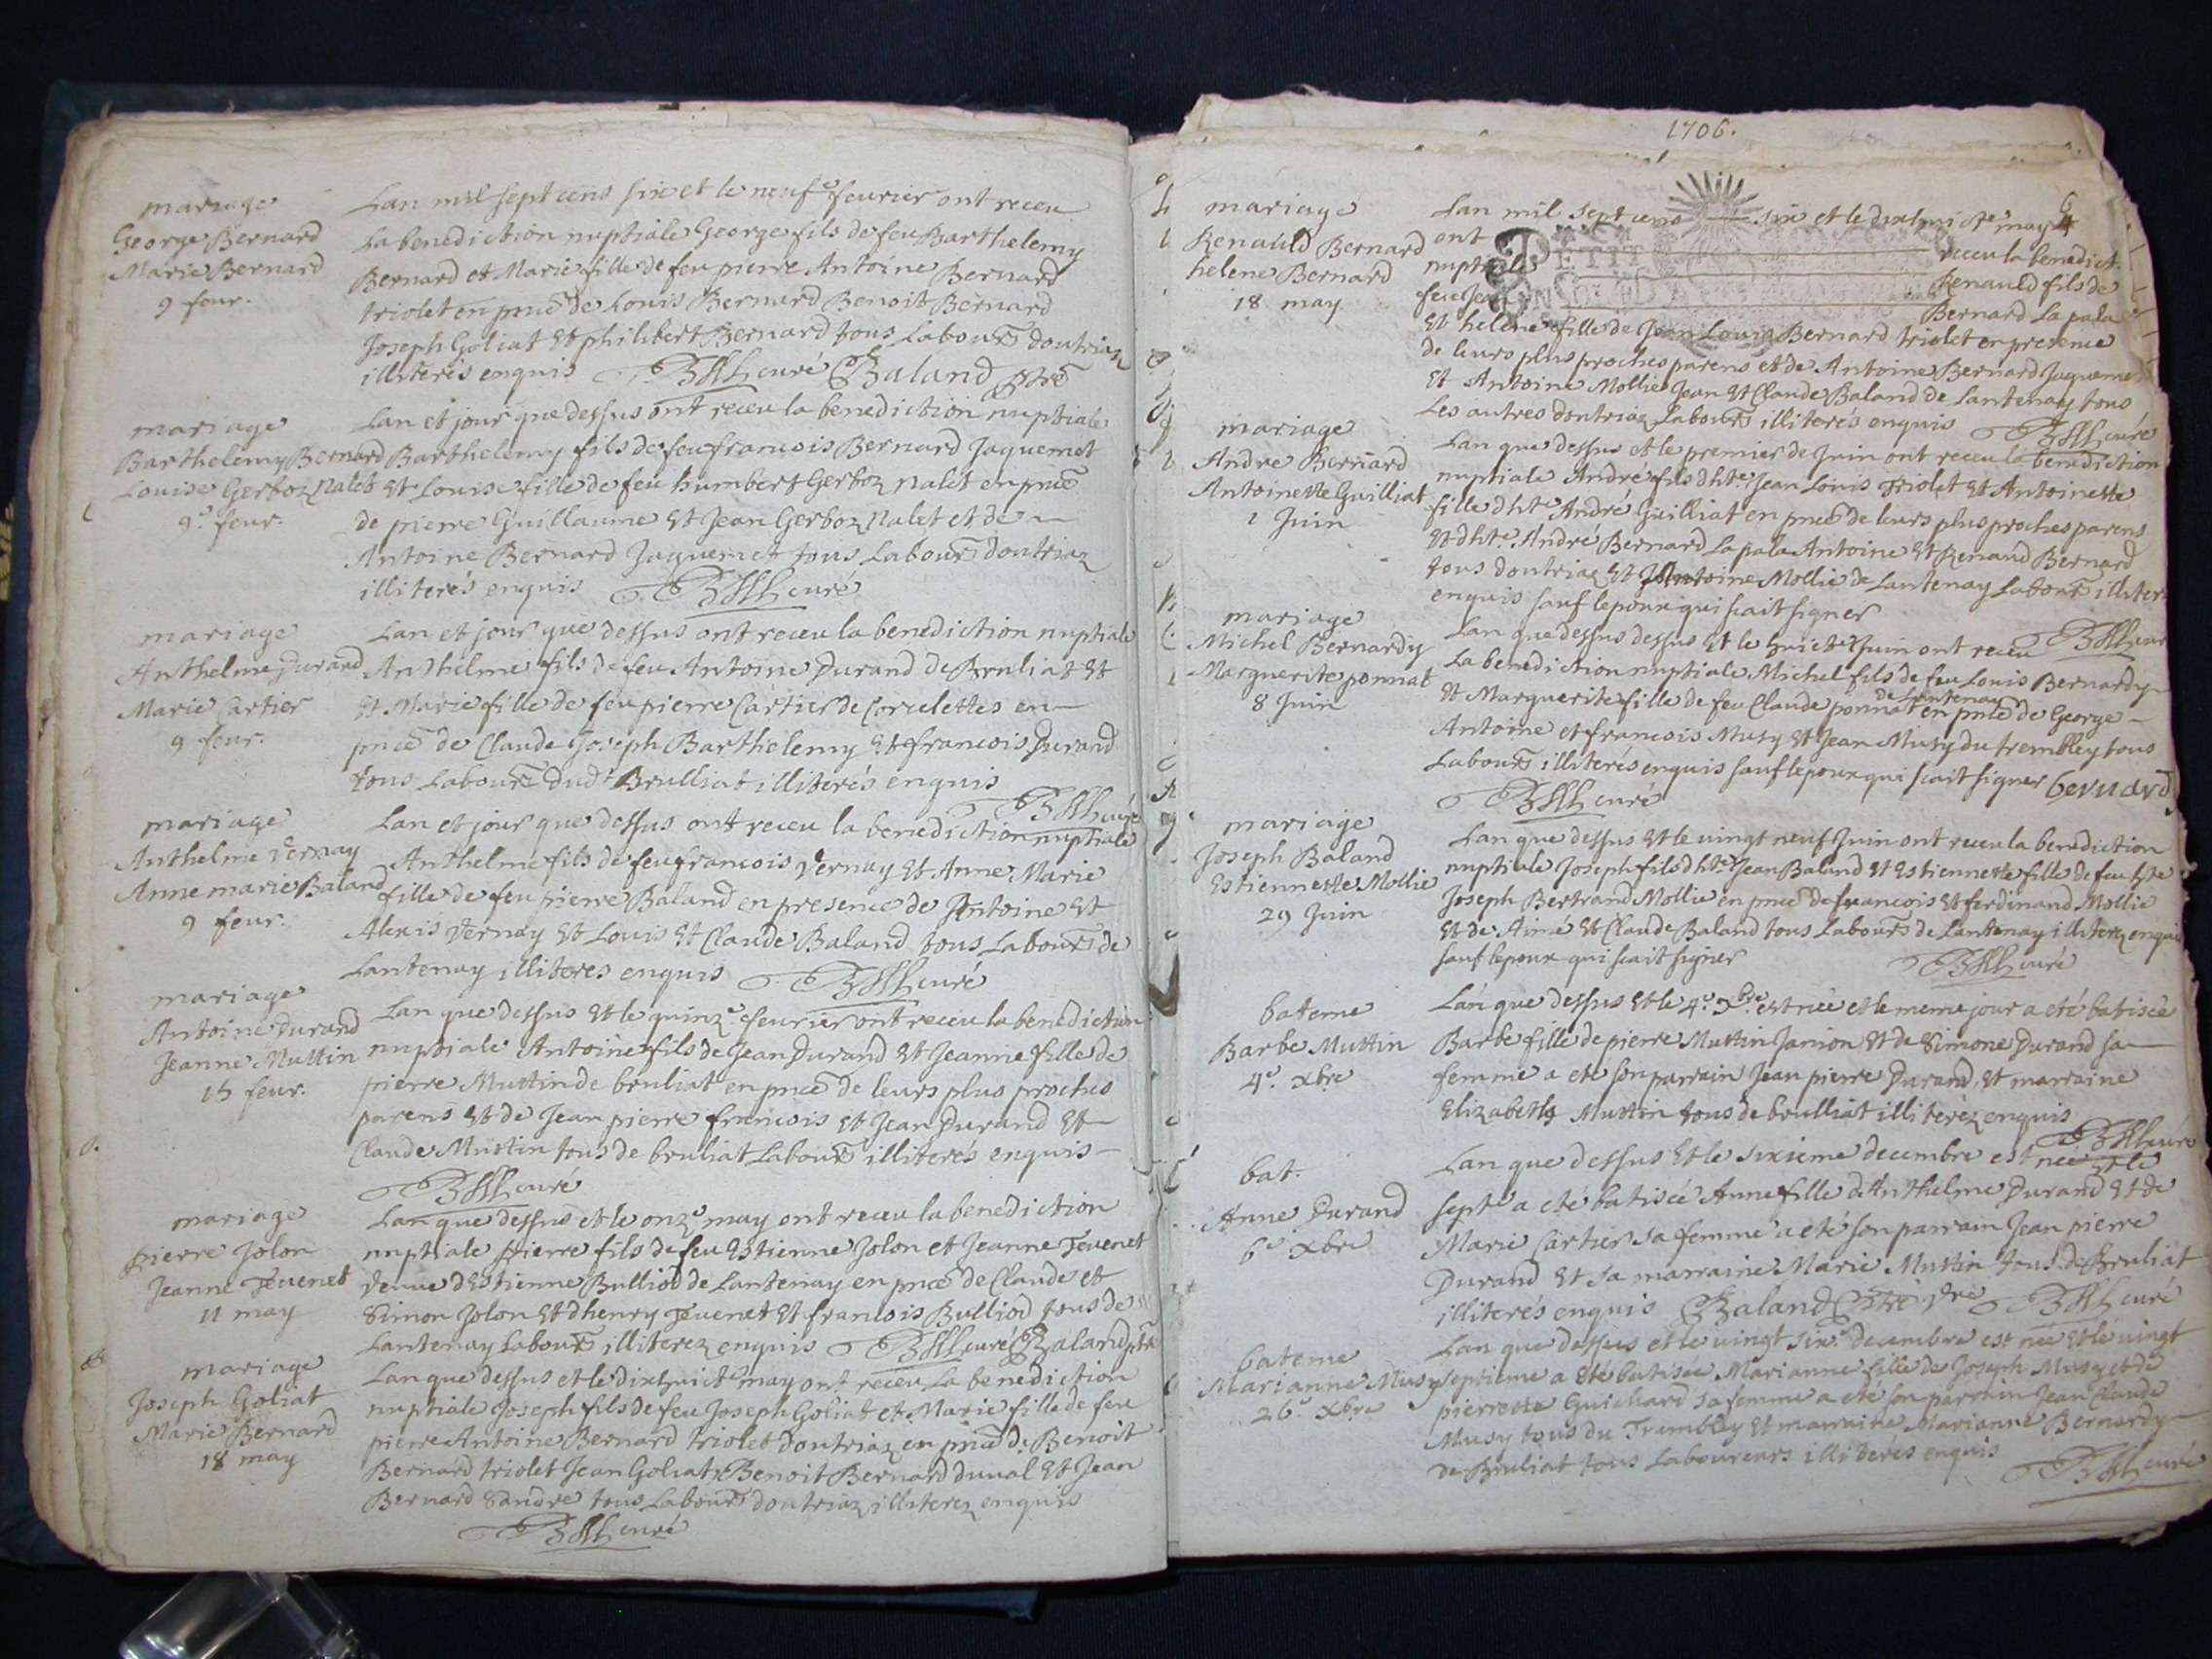 mariage
George Bernard
Marie Bernard
9 feur.
Lan mil sept cens six et le neufe feurier ont receu
La benediction nuptiale George fils de feu Barthelemy
Bernard et Marie fille de feu pierre Antoine Bernard
triolet en pnce de Louis Bernard Benoit Bernard
Joseph Goliat Et philibert Bernard tous Labours doutriaz
illiterés enquis curé Baland ptre
mariage
Barthelemy Bernard
Louise Gerboz Nalet
9e feur.
Lan et jour que dessus ont receu la benediction nuptiale
Barthelemy fils de feu francois Bernard Jaquemet
Et Louise fille de feu humbert Gerboz nalet en pnce
de pierre Guillaume Et Jean Gerboz Nalet et de
Antoine Bernard Jaquemet tous Labours doutriaz
illiterés enquis curé
mariage
Anthelme Durand
Marie Cartier
9 feur.
Lan et jour que dessus ont receu la benediction nuptiale
Anthelme fils de feu Antoine Durand de Bruliat Et
Et Marie fille de feu pierre Cartier de Corcelettes en
pnce de Claude Joseph Barthelemy Et francois Durand
tous Labours dudt Brulliat illiterés enquis
curé
mariage
Anthelme Vernay
Anne marie Baland
9 feur.
Lan et jour que dessus ont receu la benediction nuptiale
Anthelme fils de feu francois Vernay Et Anne Marie
fille de feu pierre Baland en presence de Antoine Et
Alexis Vernay Et Louis Et Claude Baland tous Labours de
Lantenay illiteres enquis curé
mariage
Antoine Durand
Jeanne Mustin
15 feur.
Lan que dessus Et le quinze feurier ont receu la benediction
nuptiale Antoine fils de Jean Durand Et Jeanne fille de
pierre Mustin de bruliat en pnce de leurs plus proches
parens Et de Jean pierre francois Et Jean Durand Et
Claude Mustin tous de bruliat Labours illiterés enquis
curé
mariage
pierre Jolon
Jeanne Teuenet
11 may
Lan que dessus et le onze may ont receu la benediction
nuptiale pierre fils de feu Estienne Jolon et Jeanne Teuenet
Veuue dEstienne Bulliod de Lantenay en pnce de Claude et
Simon Jolon Et dhenry Teuenet Et francois Bulliod tous de
Lantenay Labours illiterez enquis curé Baland ptre
mariage
Joseph Goliat
Marie Bernard
18 may
Lan que dessus et le dixhuicte may ont receu La benediction
nuptiale Joseph fils de feu Joseph Goliat et Marie fille de feu
pierre Antoine Bernard triolet doutriaz en pnce de Benoit
Bernard triolet Jean Goliat Benoit Bernard duual Et Jean
Bernard Sandre tous Labours doutriaz illiterez enquis
curé
1706.
mariage
Renauld Bernard
helene Bernard
18 may
Lan mil sept cens six et le dixhuicte may
ont receu la benedict.
nuptiale Renauld fils de
feu Jean Bernard La pala
PETIT
Et helene fille de Jean Louis Bernard triolet en presence
de leurs plus proches parens et de Antoine Bernard Jaqueme
Et Antoine Mollie Jean Et Claude Baland de Lantenay tous
Les autres doutriaz Labours illiterés enquis curé
mariage
Andre Bernard
Antoinette Guilliat
1 Juin
Lan que dessus et le premier de Juin ont receu la benediction
nuptiale André fils dhte Jean Louis Triolet Et Antoinette
fille dhte André Guilliat en pnce de leurs plus proches parens
Et dhte André Bernard La pala Antoine Et Renaud Bernard
tous doutriaz Et Antoine Mollie de Lantenay Labours illiter
enquis sauf lepoux qui scait signer
mariage
Michel Bernardy
Marguerite ponnat
8 Juin
Lan que dessus dessus Et le huicte Juin ont receu cur
La benediction nuptiale Michel fils de feu Louis Bernardy
Et Marguerite fille de feu Claude ponnat de Lantenay en pnce de George
Antoine et francois Musy Et Jean Musy du trembley tous
Labours illiterés enquis sauf lepoux qui scait signer bernard
curé
mariage
Joseph Baland
Estiennette Mollie
29 Juin
Lan que dessus Et le uingt neuf Juin ont receu la benediction
nuptiale Joseph fils dhte Jean Baland Et Estiennette fille de feu hte
Joseph Bertrand Mollie en pnce de francois Et ferdinand Mollie
Et de Aimé Et Claude Baland tous Labours de Lantenay illiterez enqui
sauf lepoux qui scait signer curé
bateme
Barbe Mustin
4e. xbre
Lan que dessus Et le 4e. xbre est née et le meme jour a eté batisée
Barbe fille de pierre Mustin Janion Et de Simone Durand sa
femme a eté son parrain Jean pierre Durand Et marraine
Elizabeth Mustin tous de brulliat illiterez enquis
curé
bat.
Anne Durand
6e xbre
Lan que dessus Et le sixieme decembre est née et le
septe a eté batisée Anne fille dAnthelme Durand Et de
Marie Cartier sa femme a eté son parrain Jean pierre
Durand Et sa marraine Marie Mustin tous de Bruliat
illiterés enquis Baland curé
bateme
Marianne Musy
26e xbre
Lan que dessus et le uingt sixe decembre est née Et le uingt
septieme a eté batisée Marianne fille de Joseph Musy et de
pierrette Guichard sa femme a eté son parrain Jean Claude
Musy tous du Trembley Et marraine Marianne Bernardy
de Bruliat tous Laboureurs illiderés enquis
curé